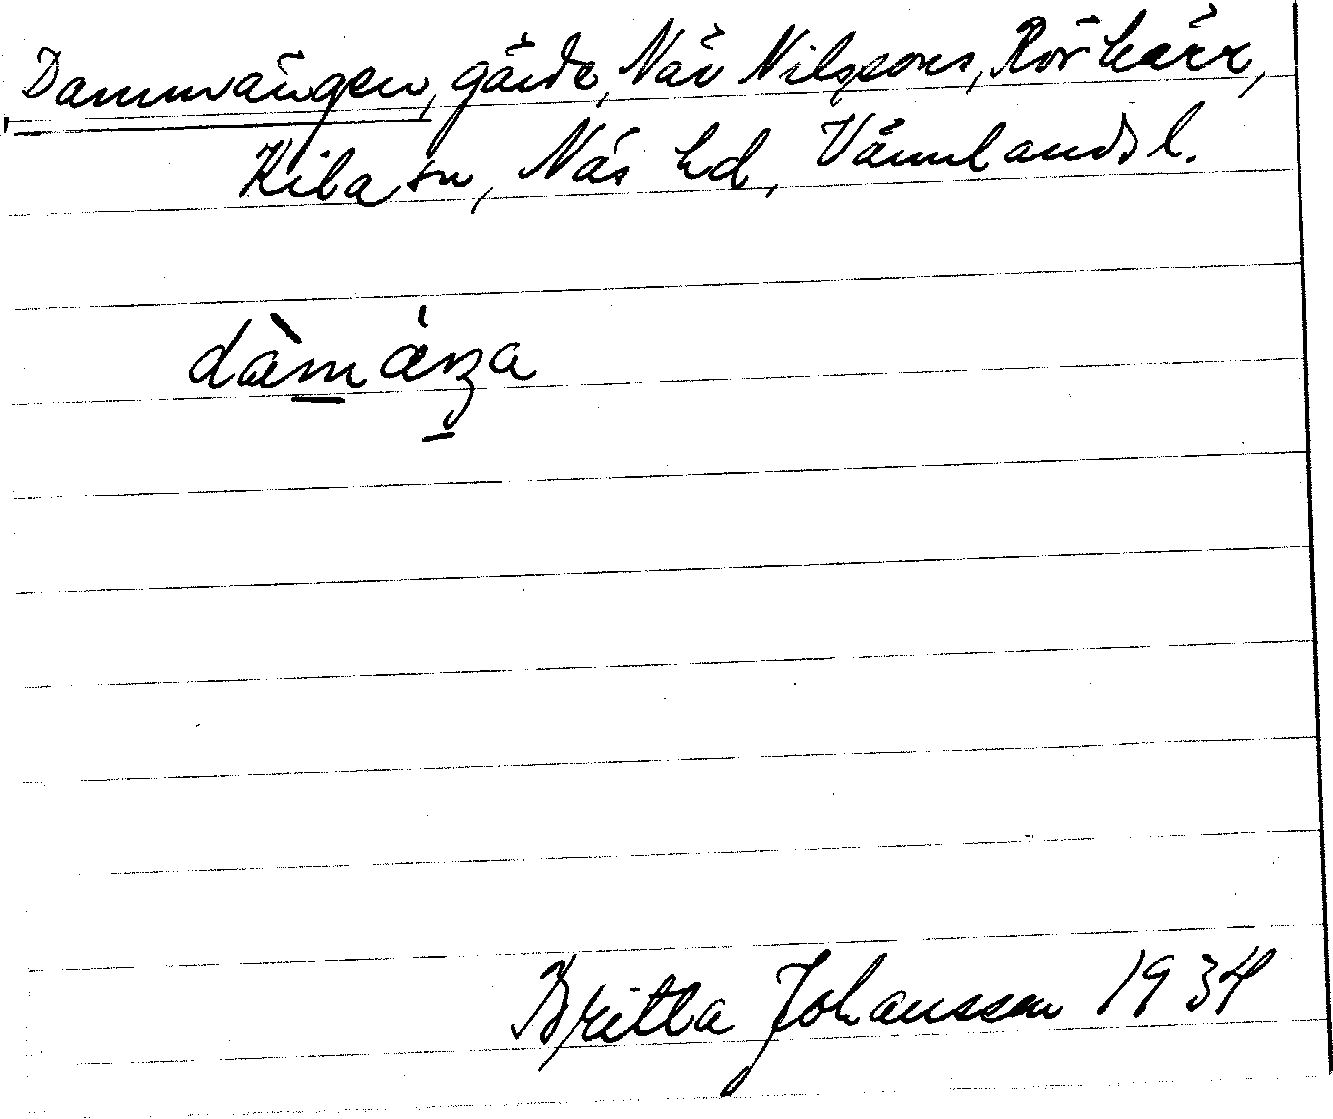 Dammvängen, gärde, När Nilssons, Rörkärr,
Kila sn, Näs hd, Värmlands l.
Britta Johansson 1934